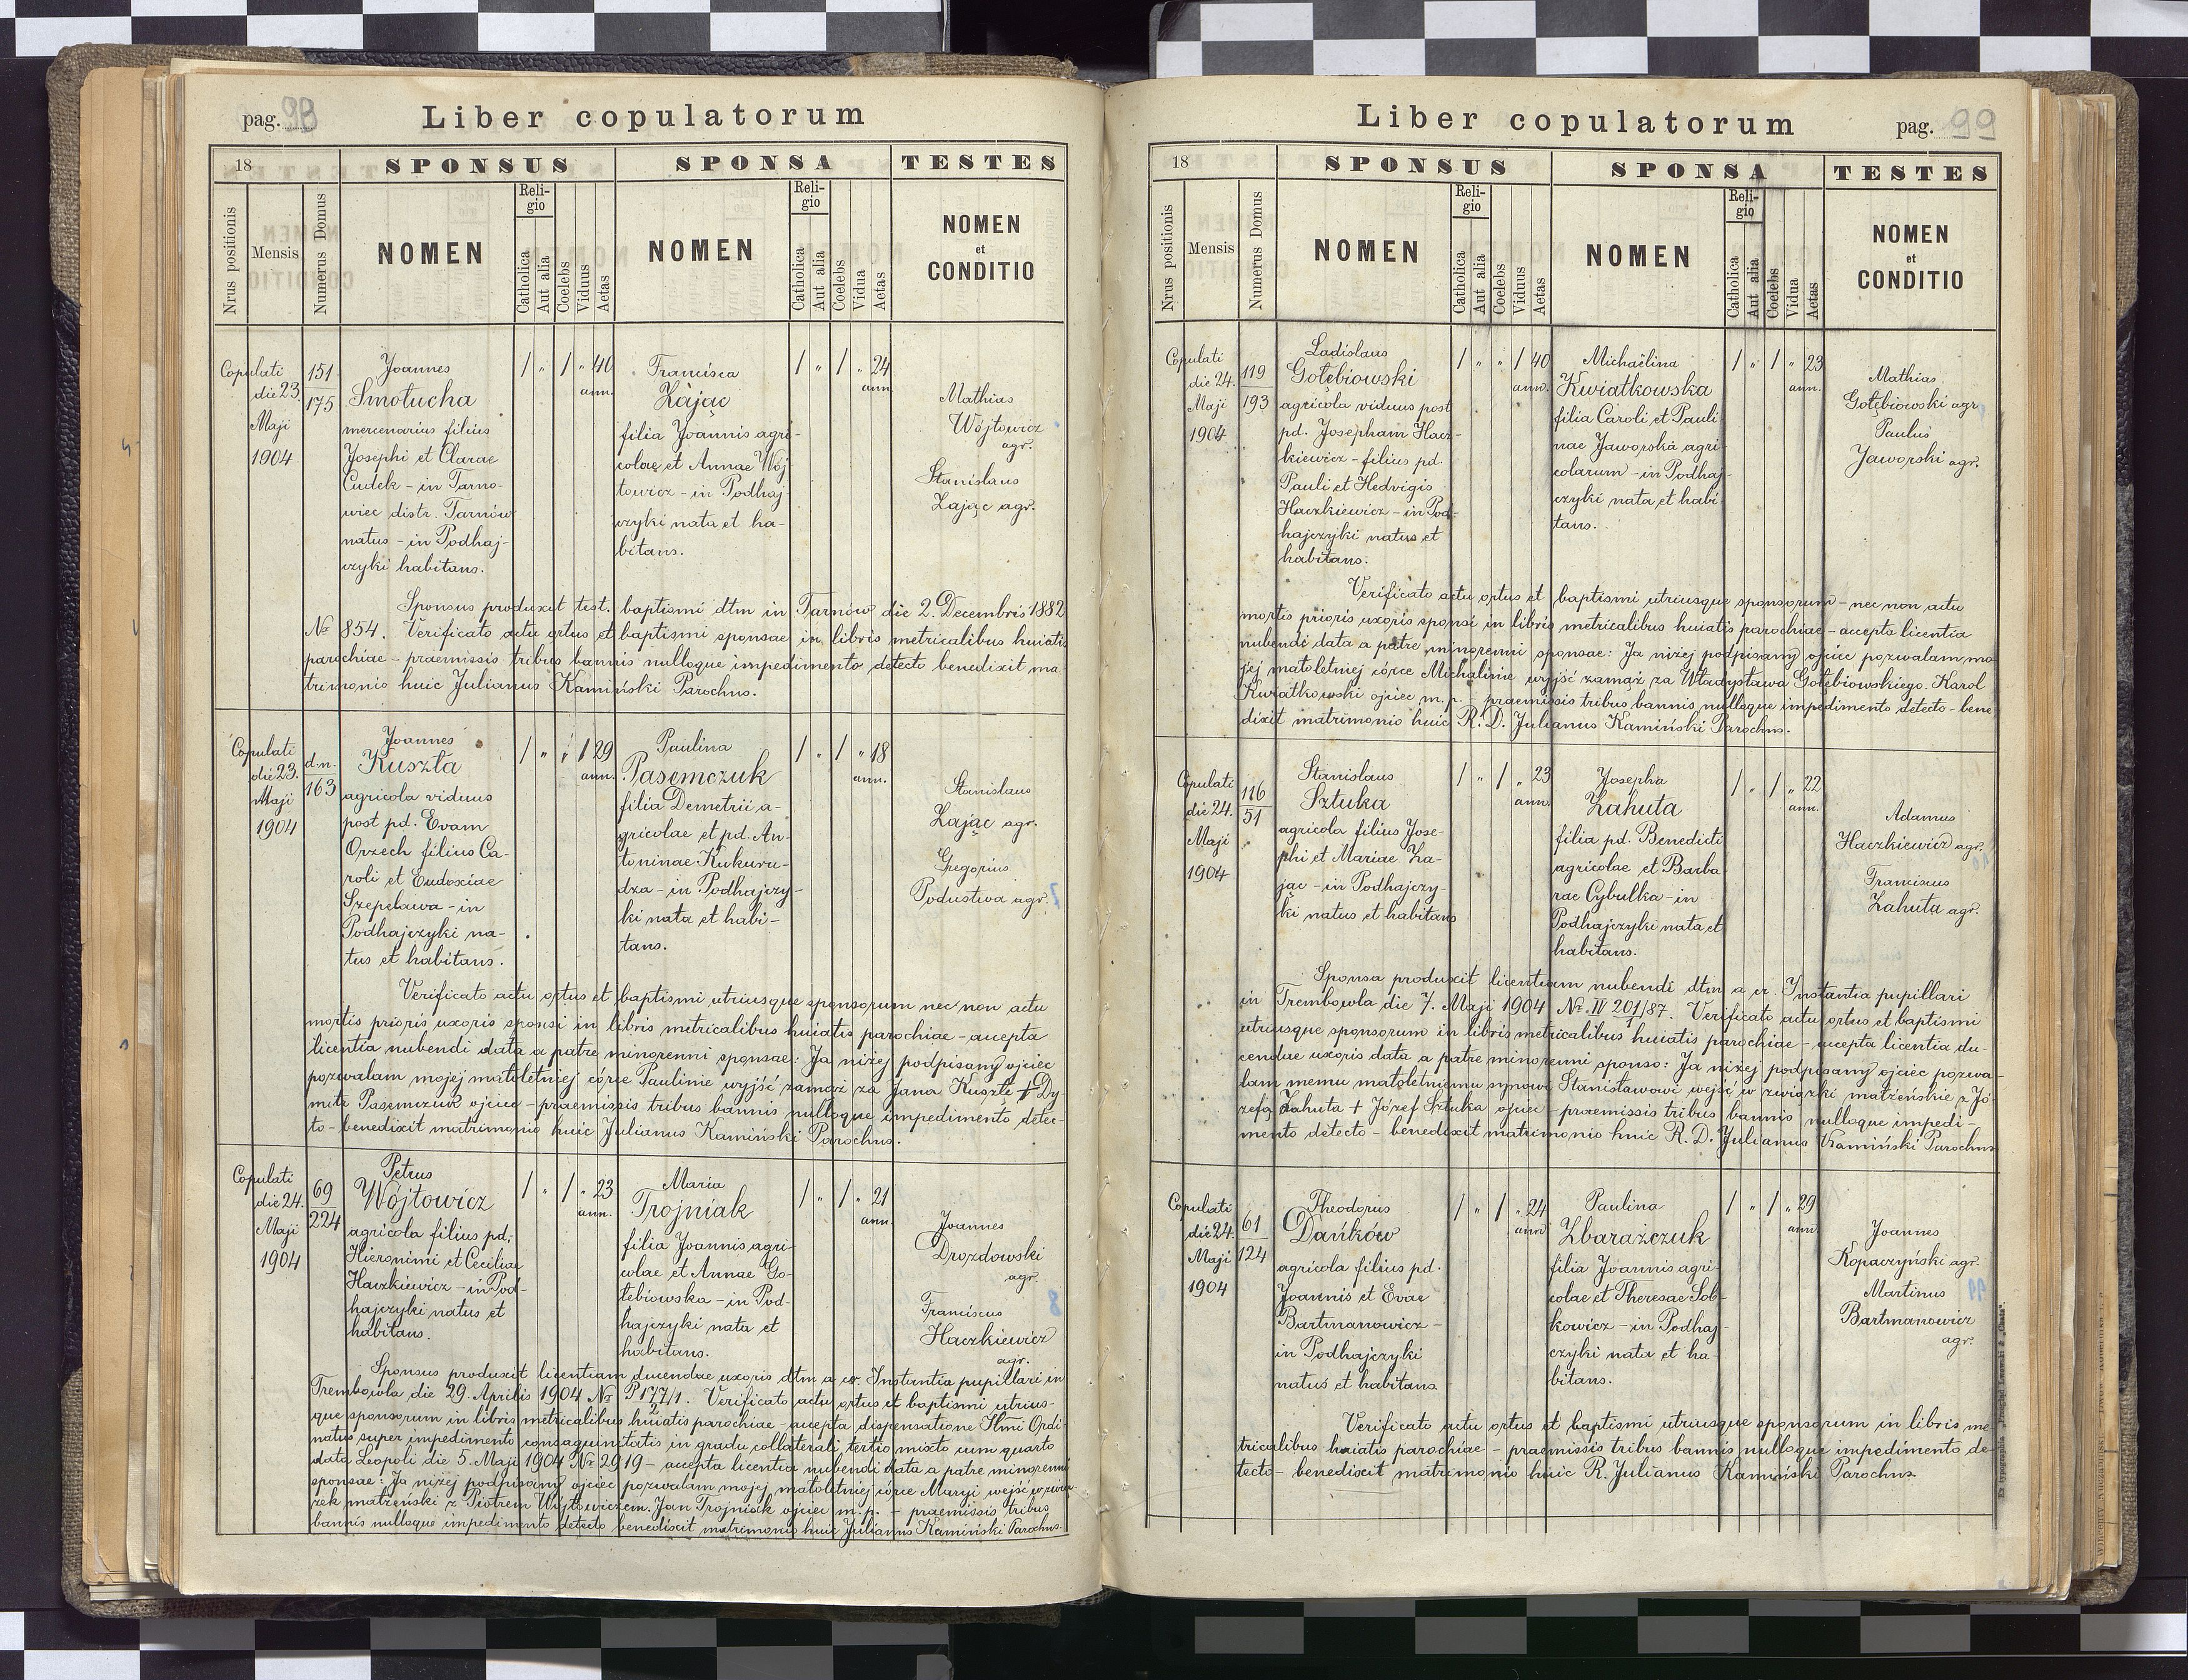 pag. 98 Liber copulatorum
18 SPONSUS SPONSA TESTES
Nrus positionis
Mensis
Numerus Domus
NOMEN
Religio
Catholica
Aut alia
Coelebs
Viduus
Aetas
NOMEN
Religio
Catholica
Aut alia
Coelebs
Vidua
Aetas
NOMEN
et
CONDITIO
Copulati
die 23.
Maji
1904
151
175
Joannes
Smołucha
mercenarius filius
Josephi et Clarae
Cudek – in Tarno-
wiec distr. Tarnów
natus – in Podhaj-
czyki habitans.
1 „ 1 „ 40
ann.
Francisca
Zając
filia Joannis agri-
colae et Annae Wój
towicz – in Podhaj
czyki nata et ha-
bitans.
1 „ 1 „ 24
ann.
Mathias
Wójtowicz
agr.
Stanislaus
Zając agr.
Sponsus produxit test. baptismi dtm in Tarnów die 2. Decembris 1882
№ 854. Verificato actu ortus et baptismi sponsae in libris metricalibus huiatis
parochiae – praemissis tribus bannis nulloque impedimento detecto benedixit ma-
trimonio huic Julianus Kamiński Parochus.
Copulati
die 23.
Maji
1904
d.n.
163
Joannes
Kuszta
agricola viduus
post pd. Evam
Orzech filius Ca-
roli et Eudoxiae
Szepeława – in
Podhajczyki na-
tus et habitans.
1 „ „ 1 29
ann.
Paulina
Pasemczuk
filia Demetrii a-
gricolae et pd. An-
toninae Kukuru-
dza – in Podhajczy-
ki nata et habi-
tans.
1 „ 1 „ 18
ann.
Stanislaus
Zając agr.
Gregorius
Podustwa agr.
Verificato actu ortus et baptismi utriusque sponsorum nec non actu
mortis prioris uxoris sponsi in libris metricalibus huiatis parochiae – accepta
licentia nubendi data a patre minorenni sponsae: Ja niżej podpisany ojciec
pozwalam mojej małoletniej córce Paulinie wyjść zamąż za Jana Kusztę + Dy-
mitr Pasemczuk ojciec – praemissis tribus bannis nulloque impedimento detec-
to – benedixit matrimonio huic Julianus Kamiński Parochus.
Copulati
die 24.
Maji
1904
69
224
Petrus
Wójtowicz
agricola filius pd.
Hieronimi et Ceciliae
Haczkiewicz – in Pod-
hajczyki natus et
habitans.
1 „ 1 „ 23
ann.
Maria
Trojniak
filia Joannis agri-
colae et Annae Go-
łebiowska – in Pod-
hajczyki nata et
habitans.
1 „ 1 „ 21
ann.
Joannes
Drozdowski
agr.
Franciscus
Haczkiewicz
agr.
Sponsus produxit licentiam ducendae uxoris dtm a cr. Instantia pupillari in
Trembowla die 29. Aprilis 1904 № P 177/1. Verificato actu ortus et baptismi utrius-
2
que sponsorum in libris metricalibus huiatis parochiae – accepta dispensatione Illmi Ordi-
natus super impedimento consaguinitatis in gradu collaterali tertio mixto cum quarto
data Leopoli die 5. Maji 1904 Nr 2919 – accepta licentia nubendi data a patre minorenni
sponsae: Ja niżej podpisany ojciec pozwalam mojej małoletniej córce Maryi wejść w zwią-
zek małżeński z Piotrem Wójtowiczem. Jan Trojniak ojciec m.p. – praemissis tribus
bannis nulloque impedimento detecto benedixit matrimonio huic Julianus Kamiński Parochus.
Liber copulatorum pag. 99
18 SPONSUS SPONSA TESTES
Nrus positionis
Mensis
Numerus Domus
NOMEN
Religio
Catholica
Aut alia
Coelebs
Viduus
Aetas
NOMEN
Religio
Catholica
Aut alia
Coelebs
Vidua
Aetas
NOMEN
et
CONDITIO
Copulati
die 24.
Maji
1904
119
193
Ladislaus
Gołębiowski
agricola viduus post
pd. Josepham Hacz-
kiewicz – filius pd.
Pauli et Hedvigis
Haczkiewicz – in Pod-
hajczyki natus et
habitans.
1 „ „ 1 40
ann.
Michaëlina
Kwiatkowska
filia Caroli et Pauli
nae Jaworska agri
colarum – in Podhaj
czyki nata et habi
tans.
1 „ 1 „ 23
ann.
Mathias
Gołębiowski agr.
Paulus
Jaworski agr.
Verificato actu ortus et baptismi utriusque sponsorum – nec non actu
mortis prioris uxoris sponsi in libris metricalibus huiatis parochiae – accepta licentia
nubendi data a patre minorenni sponsae: Ja niżej podpisany ojciec pozwalam mo
jej małoletniej córce Michalinie wyjść zamąż za Władysława Gołębiowskiego. Karol
Kwiatkowski ojciec m.p. – praemissis tribus bannis nulloque impedimento detecto – bene
dixit matrimonio huic R. D. Julianus Kamiński Parochus.
Copulati
die 24.
Maji
1904
116
51
Stanislaus
Sztuka
agricola filius Jose-
phi et Mariae Za-
jąc – in Podhajczy-
ki natus et habitans
1 „ 1 „ 23
ann.
Josepha
Zahuta
filia pd. Benedicti
agricolae et Barba
rae Cybulka – in
Podhajczyki nata et
habitans.
1 „ 1 „ 22
ann.
Adamus
Haczkiewicz agr.
Franciscus
Zahuta agr.
Sponsa produxit licentiam nubendi dtm a cr. Instantia pupillari
in Trembowla die 7. Maji 1904 №. IV 201/87. Verificato actu ortus et baptismi
1
utriusque sponsorum in libris metricalibus huiatis parochiae – accepta licentia du-
cendae uxoris data a patre minorenni sponso: Ja niżej podpisany ojciec pozwa-
lam memu małoletniemu synowi Stanisławowi wejść w związki małżeńskie z Jó-
zefą Zahuta + Józef Sztuka ojciec – praemissis tribus bannis nulloque impedi-
mento detecto – benedixit matrimonio huic R. D. Julianus Kamiński Parochus
Copulati
die 24.
Maji
1904
61
124
Theodorus
Dańków
agricola filius pd.
Joannis et Evae
Bartmanowicz –
in Podhajczyki
natus et habitans.
1 „ 1 „ 24
ann.
Paulina
Zbarażczuk
filia Joannis agri
colae et Theresae Sob-
kowicz – in Podhaj-
czyki nata et ha-
bitans.
1 „ 1 „ 29
ann.
Joannes
Kopaczyński agr.
Martinus
Bartmanowicz
agr.
Verificato actu ortus et baptismi utriusque sponsorum in libris me
tricalibus huiatis parochiae – praemissis tribus bannis nulloque impedimento de-
tecto – benedixit matrimonio huic R. Julianus Kamiński Parochus.